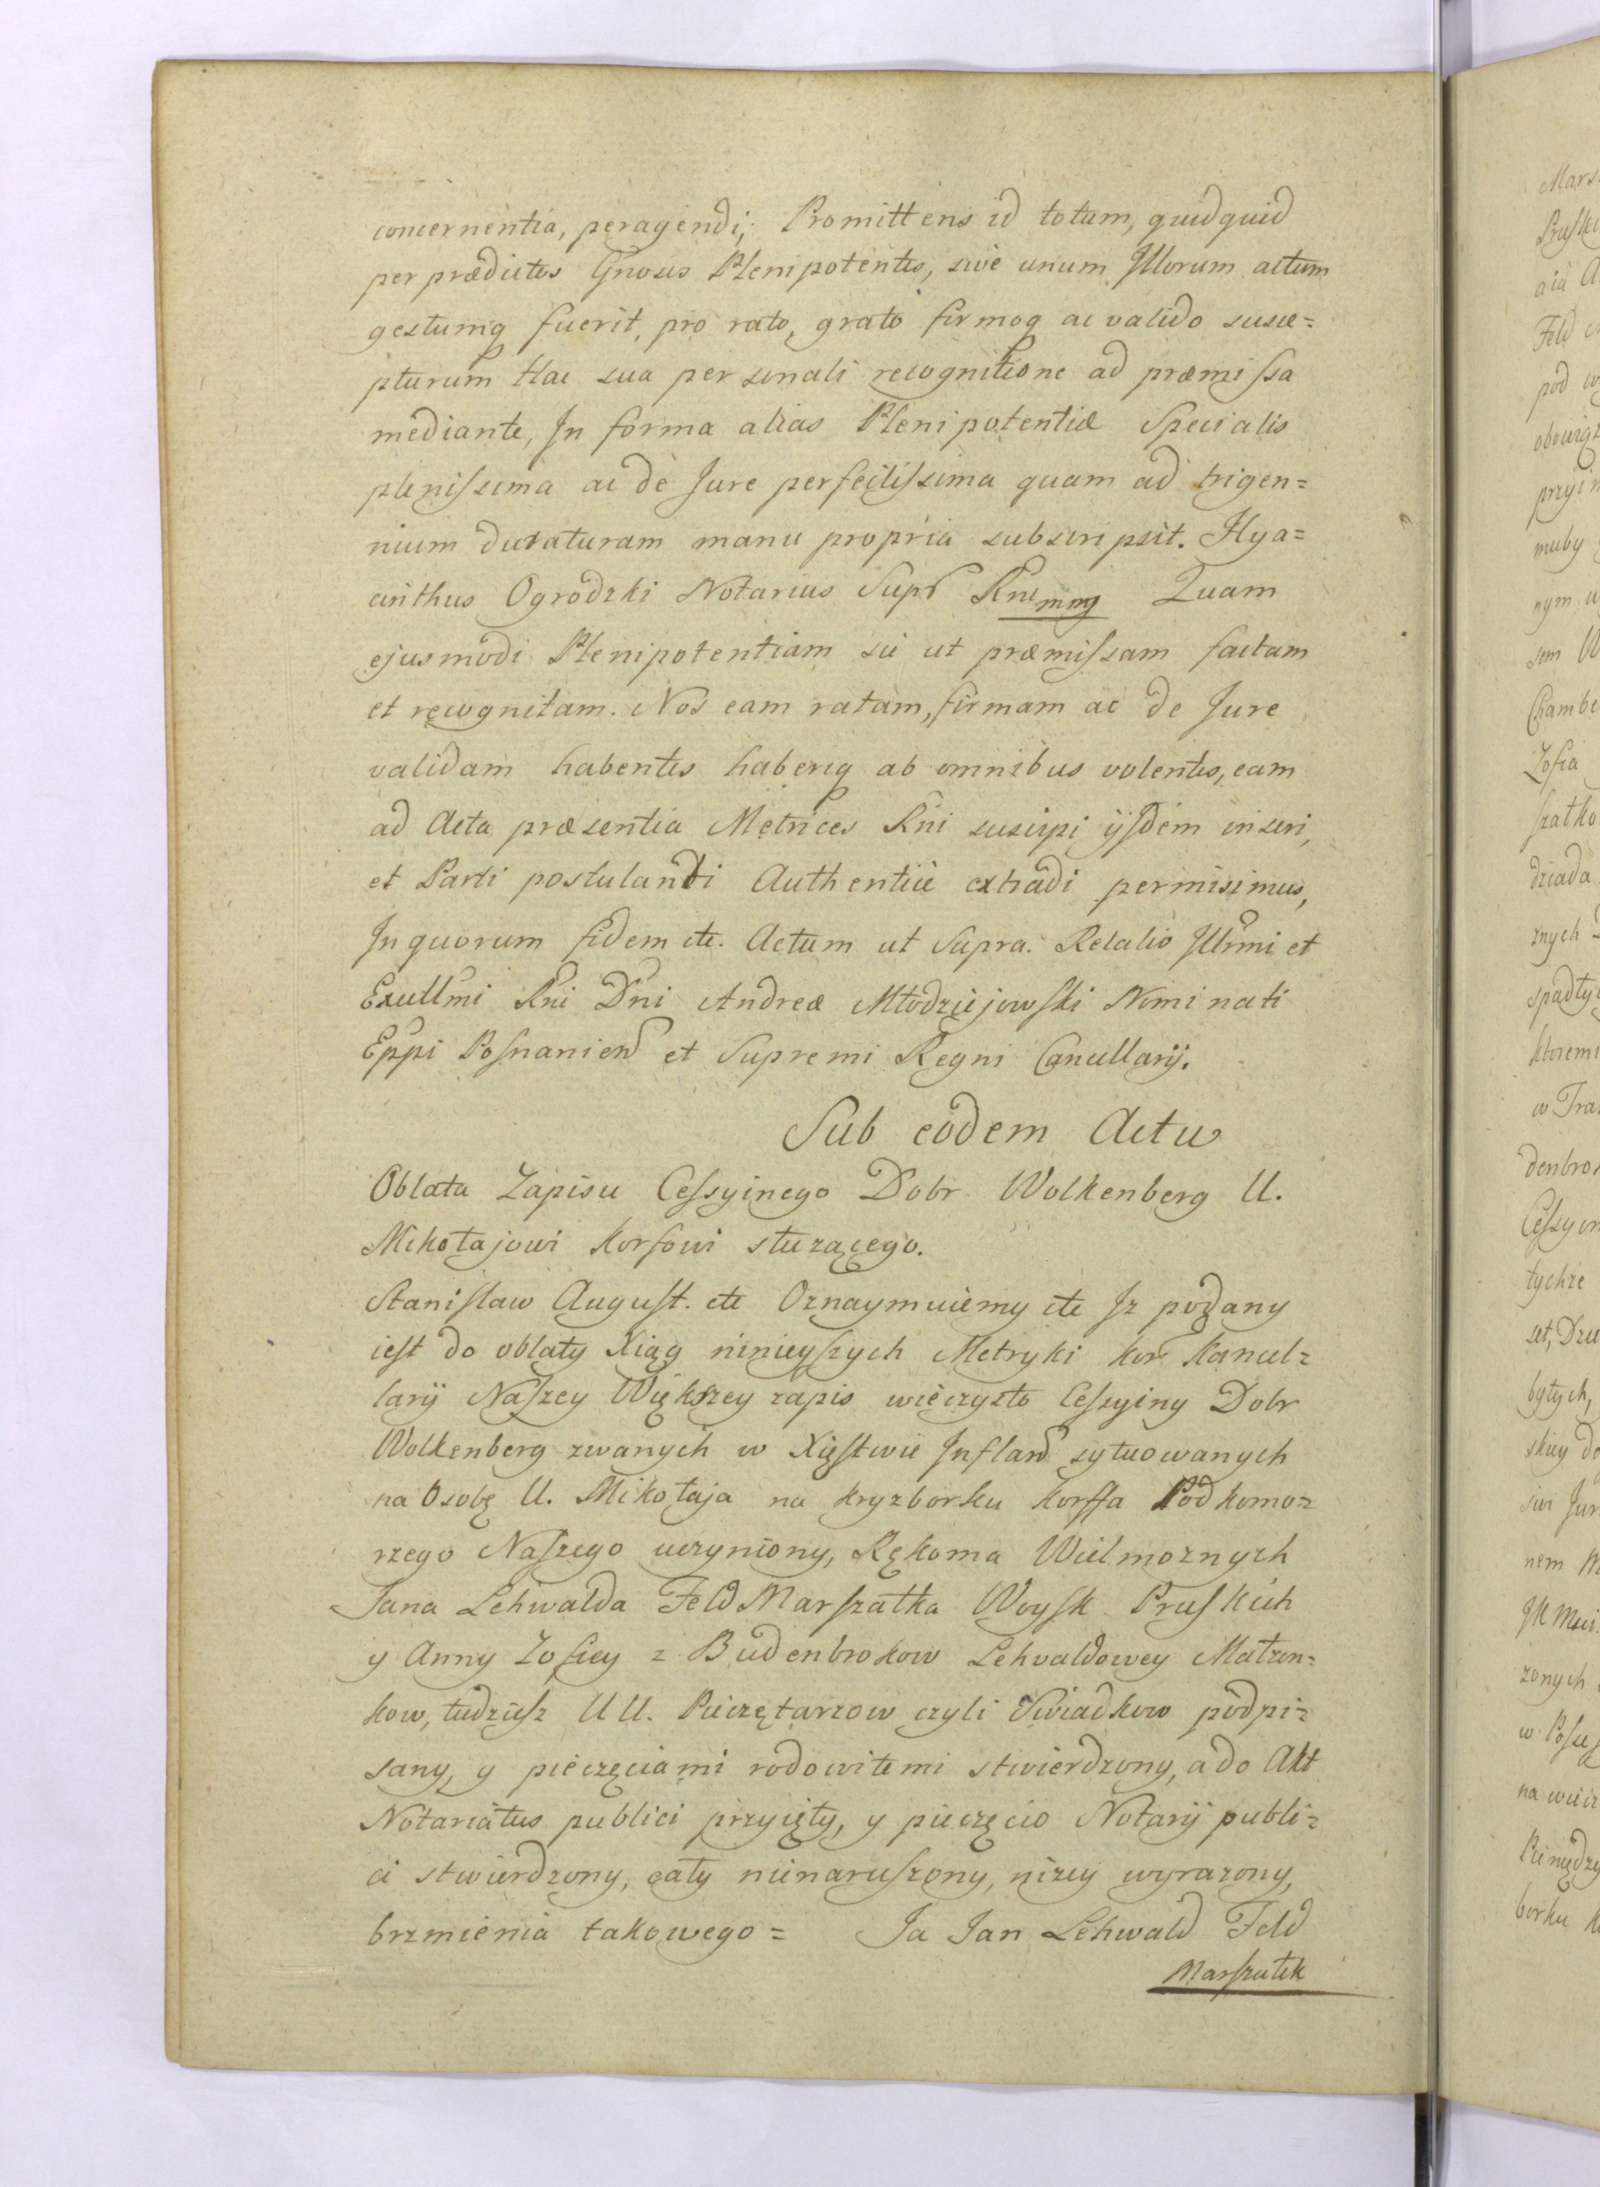 concernentia, peragendi, Promittens id totum, quidquid
per prædictos Gnosos Plenipotentes, sive unum Illorum actum
gestumq fuerit, pro rato, grato firmoq ac valido susce=
pturum Hac sua personali recognitione ad præmissa
mediante, In forma alias Plenipotentiæ Specialis
plenissima ac de Jure perfectissima quam ad trigen=
nium duraturam manu propria subscripsit. Hya=
cinthus Ogrodzki Notarius Supr Rni mmq Quam
ejusmodi Plenipotentiam sic ut præmissam factam
et recognitam. Nos eam ratam, firmam ac de Jure
validam habentes haberiq ab omnibus volentes, eam
ad Acta præsentia Metrices Rni suscipi ijsdem inseri,
et Parti postulandi Authentice extradi permisimus,
In quorum fidem etc. Actum ut Supra. Relatio Illrmi et
Excellmi Rni Dni Andreæ Młodziejowski Nominati
Eppi Posnanien et Supremi Regni Cancellarij.
Sub eodem Actu
Oblata Zapisu Cessyinego Dobr Wolkenberg U.
Mikołajowi Korfowi służącego.
Stanisław August. etc Oznaymuiemy etc Iz podany
iest do oblaty Xiąg ninieyszych Metryki Kor Kancel=
larij Naszey Większey zapis wieczysto Cessyiny Dobr
Wolkenberg zwanych w Xięstwie Inflan sytuowanych
na Osobę U. Mikołaja na Kryzborku Korffa Podkomo=
rzego Naszego uczyniony, Rękoma Wielmoznych
Jana Lehwalda Feld Marszałka Woysk Pruskich
y Anny Zofiey z Budenbrokow Lehwaldowey Małzon=
kow, tudziesz UU. Pieczętarzow czyli Swiadkow podpi=
sany, y pieczęciami rodowitemi stwierdzony, a do Akt
Notariatus publici przyięty, y pieczęcio Notarij publi=
ci stwierdzony, cały nienaruszony, nizey wyrazony,
brzmienia takowego = Ja Jan Lehwald Feld
Marszałek